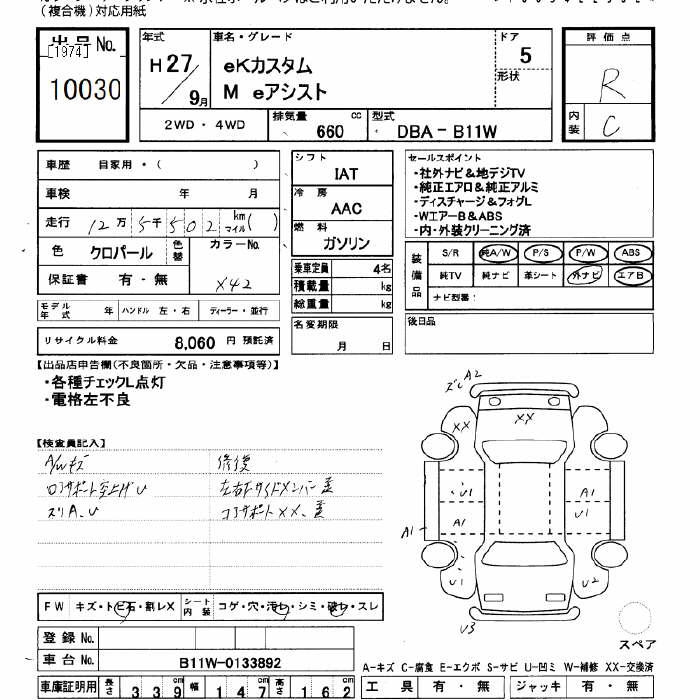 (複合機)対応用紙
出品No.
[1974]
10030
年式
H27/9月
車名・グレード
eKカスタム
M eアシスト
ドア
5
形状
評価点
R
内装
C
2WD・4WD
排気量 660 cc
型式 DBA-B11W
車歴 自家用・( )
車検 年 月
走行 12万5千502 km マイル( )
色 クロパール 色替
カラーNo. X42
保証書 有・無
モデル年式 年 ハンドル 左・右 ディーラー・並行
リサイクル料金 8,060 円 預託済
シフト
IAT
冷房
AAC
燃料
ガソリン
乗車定員 4名
積載量 kg
総重量 kg
名変期限
月 日
セールスポイント
・社外ナビ&地デジTV
・純正エアロ&純正アルミ
・ディスチャージ&フォグL
・WエアーB&ABS
・内・外装クリーニング済
装備品
S/R 純A/W P/S P/W ABS
純TV 純ナビ 革シート 外ナビ エアB
ナビ型番:
後日品
【出品店申告欄(不良箇所・欠品・注意事項等)】
・各種チェックL点灯
・電格左不良
【検査員記入】
A/Wキズ
スリA、U
修復
コアサポートXX、歪
A2
XX
XX
U1
A1
A1
A1
U1
U1
U2
U3
スペア
FW キズ・トビ石・割レX
シート内装 コゲ・穴・汚レ・シミ・破レ・スレ
登録No.
車台No. B11W-0133892
車庫証明用 長さ 339cm 幅 147cm 高さ 162cm
A-キズ C-腐食 E-エクボ S-サビ U-凹ミ W-補修 XX-交換済
工具 有・無 ジャッキ 有・無